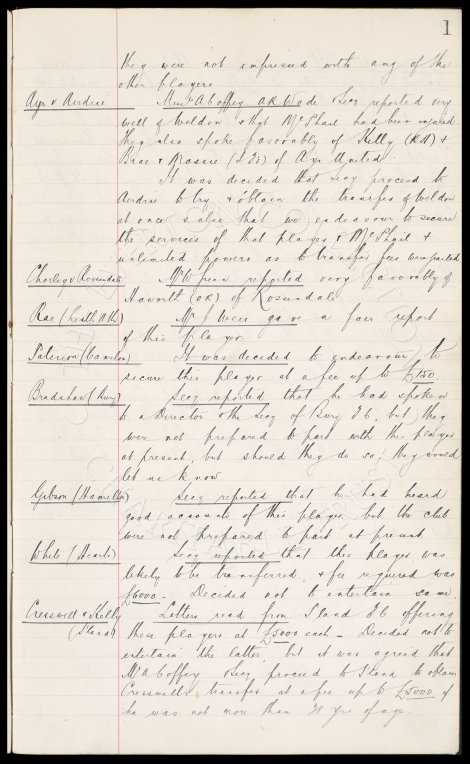 1
they were not impressed with any of the
other players
Ayr v Airdrie Messrs A Coffey A R Wade & Secy reported very
well of Weldon & that McPhail had been injured.
They also spoke favorably of Kelly (RH) &
Brae & Massie of Ayr United
It was decided that Secy proceed to
Airdrie to try & obtain the transfer of Weldon
at once & also that we endeavour to secure
the services of that player & McPhail &
unlimited powers as to transfer fees
Chorley v Rossendale Mr W reported very favorably of
Haworth (OR) of Rossendale
Rae (Leith Ath) Mr J Weir gave a fair report
of this player
Paterson (Camelon) It was decided to endeavour to
secure this player at a fee up to £150.
Bradshaw (Bury) Secy reported that he had spoken
to a Director & the Secy of Bury FC. but they
were not prepared to part with the player
at present, but should they do so, they would
let us know
Gibson (Hamilton) Secy reported that he had heard
good accounts of this player but the club
were not prepared to part at present
White (Hearts) Secy reported that this player was
likely to be transferred & fee required was
£6000 - Decided not to entertain same
Cresswell & Kelly Letters read from S'land FC offering
(S'land) these players at £5000 each - Decided not to
entertain the latter but it was agreed that
Mr A Coffey & Secy proceed to S'land to obtain
Cresswell's transfer at a fee up to £5000 if
he was not more than yrs of age.